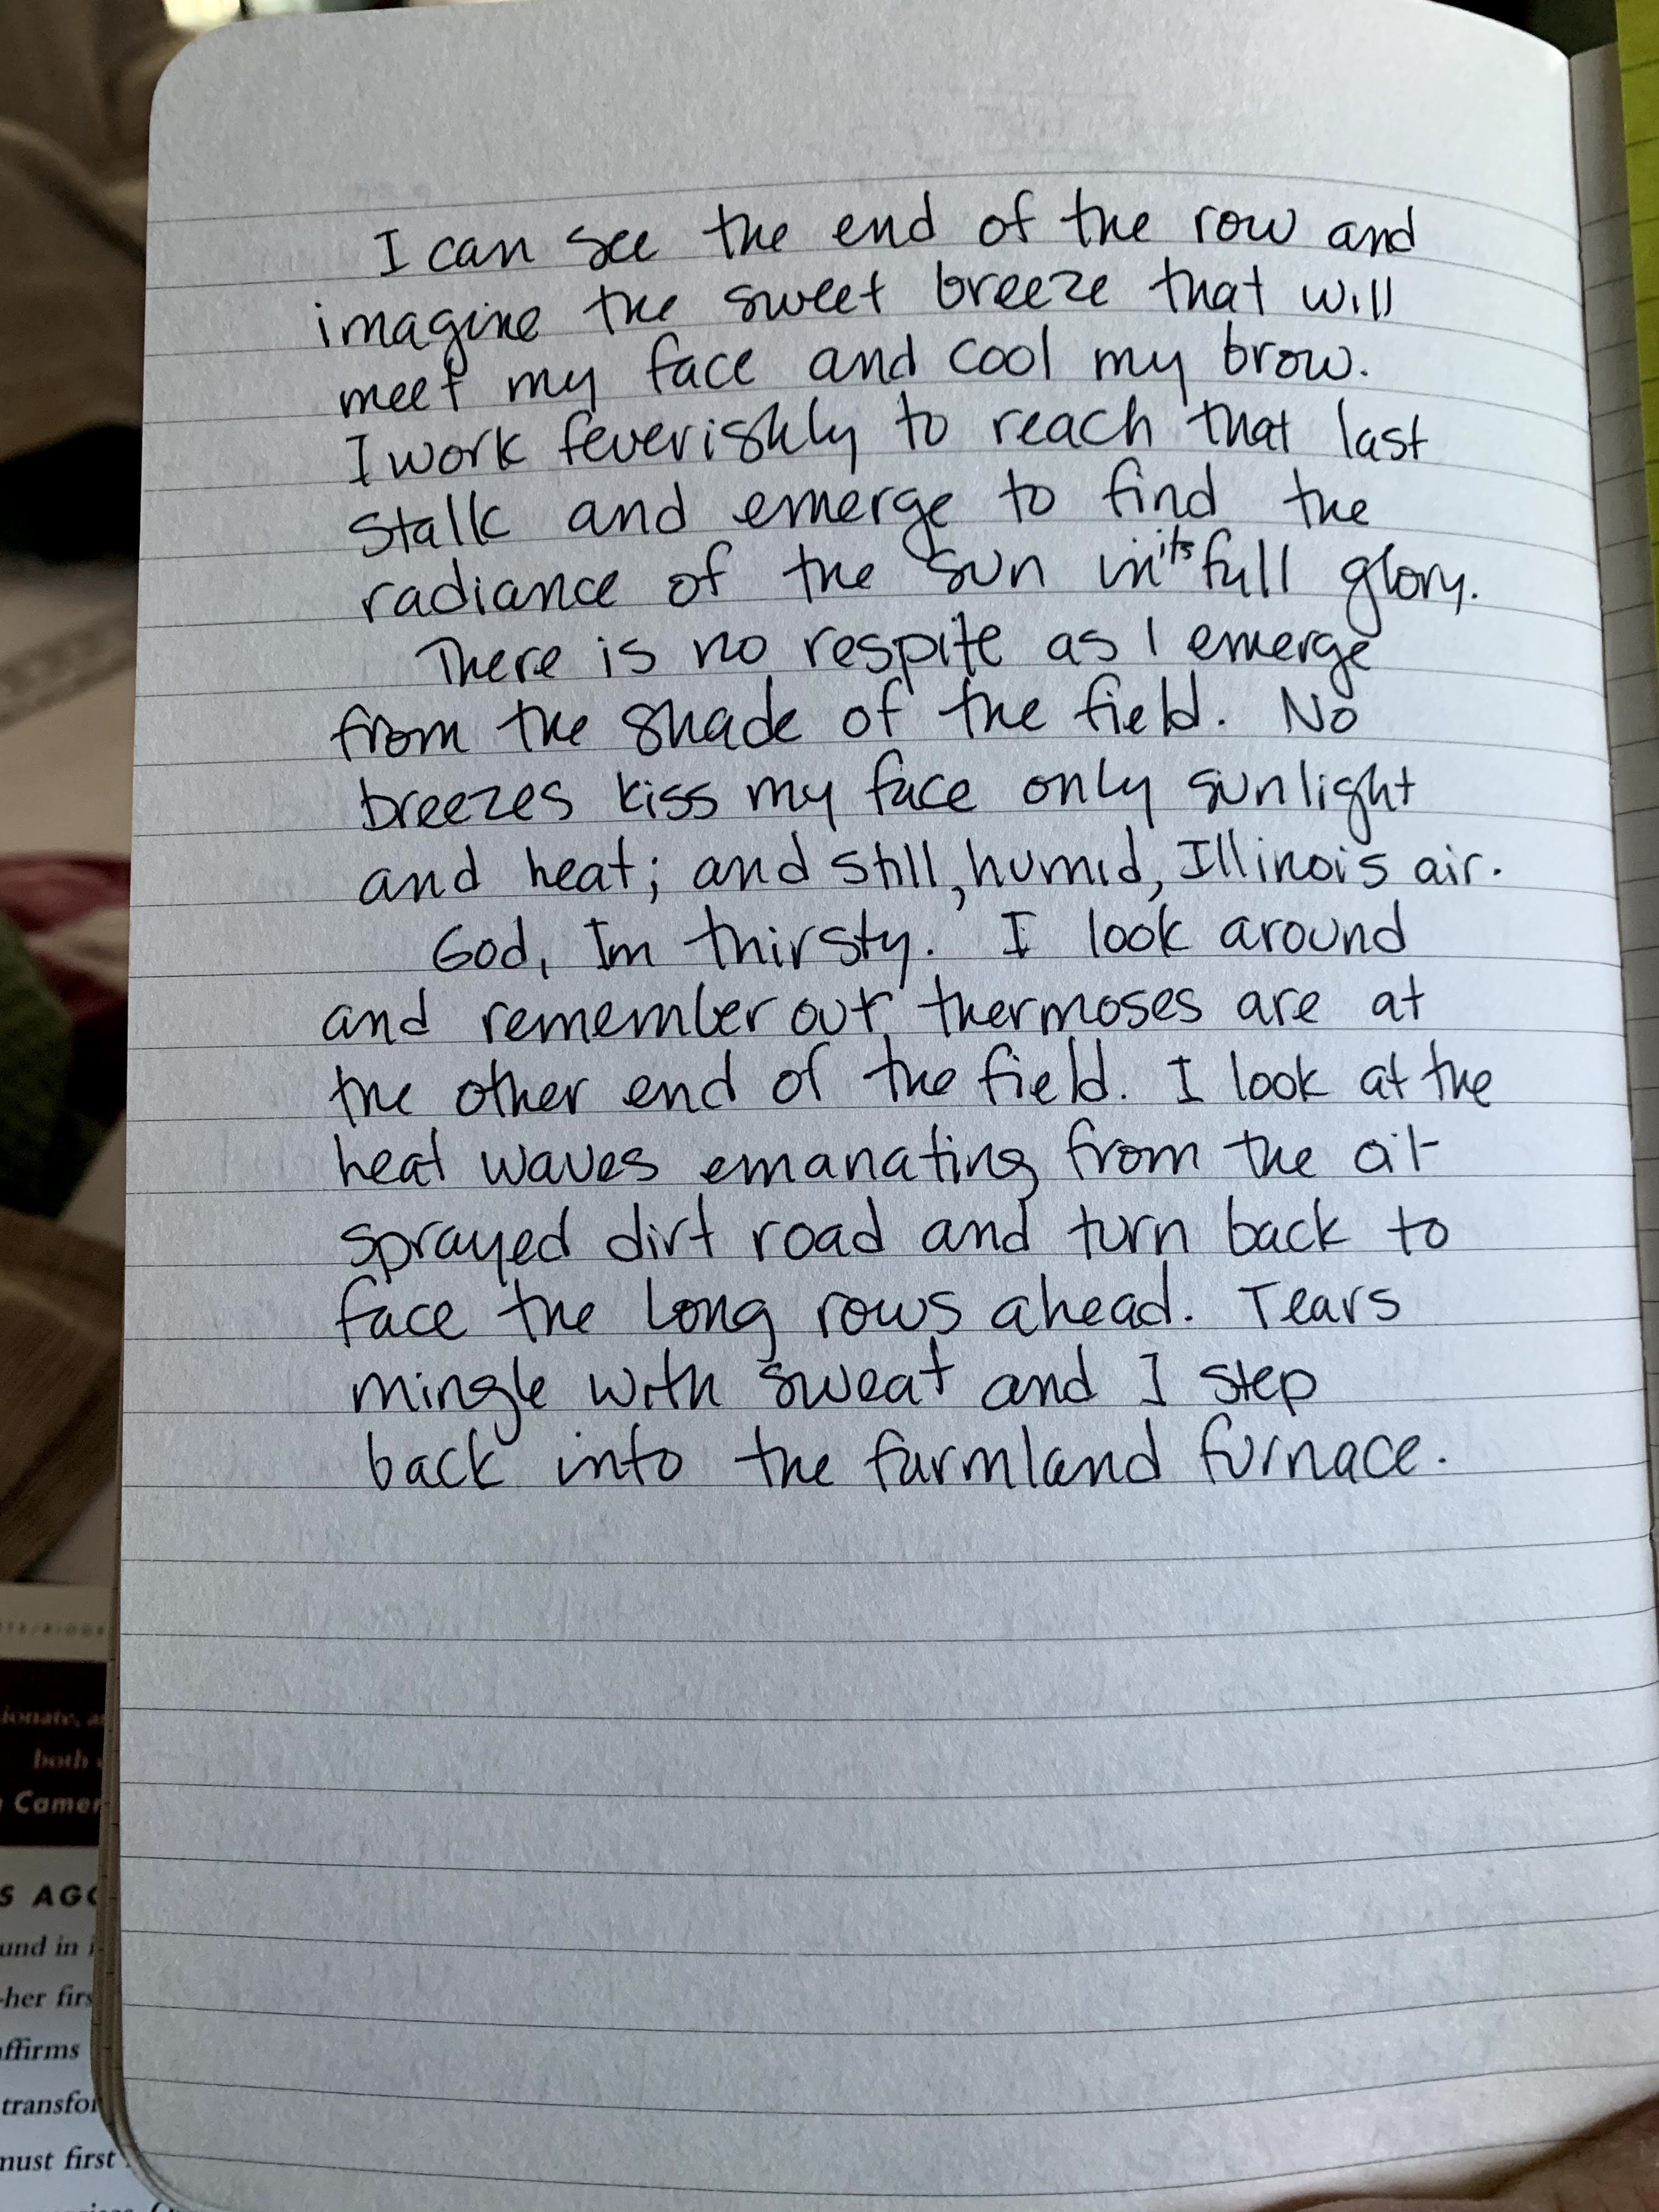 I can see the end of the row and
imagine the sweet breeze that will
meet my face and cool my brow.
I work feverishly to reach that last
stalk and emerge to find the
radiance of the sun in its full glory.
There is no respite as I emerge
from the shade of the field. No
breezes kiss my face only sunlight
and heat; and still, humid, Illinois air.
God, Im thirsty. I look around
and remember our thermoses are at
the other end of the field. I look at the
heat waves emanating from the oil-
sprayed dirt road and turn back to
face the long rows ahead. Tears
mingle with sweat and I step
back into the farmland furnace.
ionate, a
both
Camer
S AGO
und in i
-her firs
affirms
transfor
must first